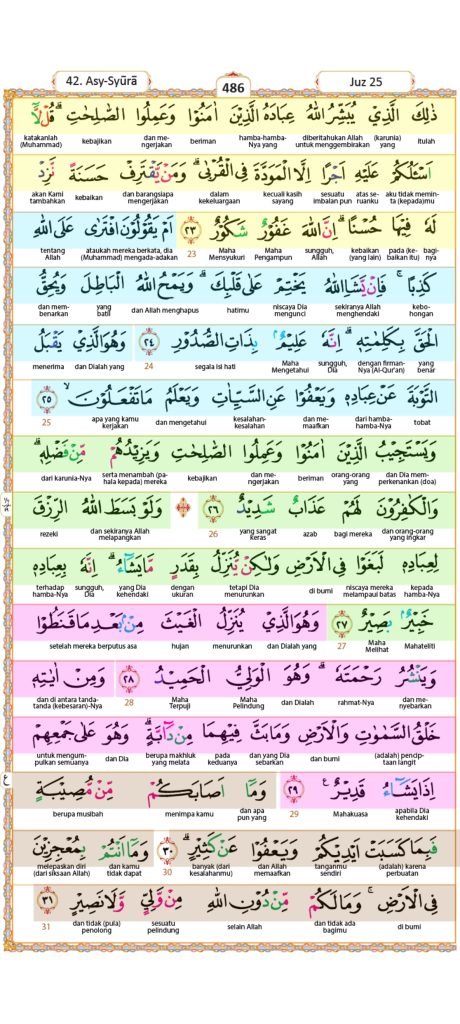 42. Asy-Syūrā
486
Juz 25
ذٰلِكَ الَّذِيْ يُبَشِّرُ اللّٰهُ عِبَادَهُ الَّذِيْنَ اٰمَنُوْا وَعَمِلُوا الصّٰلِحٰتِۗ قُلْ لَّآ
itulah (karunia) yang diberitahukan Allah untuk menggembirakan hamba-hamba-Nya yang beriman dan me-ngerjakan kebajikan katakanlah (Muhammad)
اَسْـَٔلُكُمْ عَلَيْهِ اَجْرًا اِلَّا الْمَوَدَّةَ فِى الْقُرْبٰىۗ وَمَنْ يَّقْتَرِفْ حَسَنَةً نَّزِدْ
aku tidak memin-ta (kepada)mu atas se-ruanku sesuatu imbalan pun kecuali kasih sayang dalam kekeluargaan dan barangsiapa mengerjakan kebaikan akan Kami tambahkan
لَهٗ فِيْهَا حُسْنًاۗ اِنَّ اللّٰهَ غَفُوْرٌ شَكُوْرٌ ٢٣ اَمْ يَقُوْلُوْنَ افْتَرٰى عَلَى اللّٰهِ
bagi-nya pada (ke-baikan itu) kebaikan (yang lain) sungguh, Allah Maha Pengampun Maha Mensyukuri 23 ataukah mereka berkata, dia (Muhammad) mengada-adakan tentang Allah
كَذِبًاۚ فَاِنْ يَّشَاِ اللّٰهُ يَخْتِمْ عَلٰى قَلْبِكَۗ وَيَمْحُ اللّٰهُ الْبَاطِلَ وَيُحِقُّ
kebo-hongan sekiranya Allah menghendaki niscaya Dia mengunci hatimu dan Allah menghapus yang batil dan mem-benarkan
الْحَقَّ بِكَلِمٰتِهٖۗ اِنَّهٗ عَلِيْمٌۢ بِذَاتِ الصُّدُوْرِ ٢٤ وَهُوَ الَّذِيْ يَقْبَلُ
yang benar dengan firman-Nya (Al-Qur'an) sungguh, Dia Maha Mengetahui segala isi hati 24 dan Dialah yang menerima
التَّوْبَةَ عَنْ عِبَادِهٖ وَيَعْفُوْا عَنِ السَّيِّاٰتِ وَيَعْلَمُ مَا تَفْعَلُوْنَۙ ٢٥
tobat dari hamba-hamba-Nya dan me-maafkan kesalahan-kesalahan dan mengetahui apa yang kamu kerjakan 25
وَيَسْتَجِيْبُ الَّذِيْنَ اٰمَنُوْا وَعَمِلُوا الصّٰلِحٰتِ وَيَزِيْدُهُمْ مِّنْ فَضْلِهٖۗ
dan Dia mem-perkenankan (doa) orang-orang yang beriman dan me-ngerjakan kebajikan serta menambah (pa-hala kepada) mereka dari karunia-Nya
وَالْكٰفِرُوْنَ لَهُمْ عَذَابٌ شَدِيْدٌ ٢٦ وَلَوْ بَسَطَ اللّٰهُ الرِّزْقَ
dan orang-orang yang ingkar bagi mereka azab yang sangat keras 26 dan sekiranya Allah melapangkan rezeki
لِعِبَادِهٖ لَبَغَوْا فِى الْاَرْضِ وَلٰكِنْ يُّنَزِّلُ بِقَدَرٍ مَّا يَشَاۤءُۗ اِنَّهٗ بِعِبَادِهٖ
kepada hamba-Nya niscaya mereka melampaui batas di bumi tetapi Dia menurunkan dengan ukuran yang Dia kehendaki sungguh, Dia terhadap hamba-hamba-Nya
خَبِيْرٌۢ بَصِيْرٌ ٢٧ وَهُوَ الَّذِيْ يُنَزِّلُ الْغَيْثَ مِنْۢ بَعْدِ مَا قَنَطُوْا
Mahateliti Maha Melihat 27 dan Dialah yang menurunkan hujan setelah mereka berputus asa
وَيَنْشُرُ رَحْمَتَهٗۗ وَهُوَ الْوَلِيُّ الْحَمِيْدُ ٢٨ وَمِنْ اٰيٰتِهٖ
dan me-nyebarkan rahmat-Nya dan Dialah Maha Pelindung Maha Terpuji 28 dan di antara tanda-tanda (kebesaran)-Nya
خَلْقُ السَّمٰوٰتِ وَالْاَرْضِ وَمَا بَثَّ فِيْهِمَا مِنْ دَاۤبَّةٍۗ وَهُوَ عَلٰى جَمْعِهِمْ
(adalah) pencip-taan langit dan bumi dan yang Dia sebarkan pada keduanya berupa makhluk yang melata dan Dia untuk mengum-pulkan semuanya
اِذَا يَشَاۤءُ قَدِيْرٌ ٢٩ وَمَآ اَصَابَكُمْ مِّنْ مُّصِيْبَةٍ
apabila Dia kehendaki Mahakuasa 29 dan apa pun yang menimpa kamu berupa musibah
ع
فَبِمَا كَسَبَتْ اَيْدِيْكُمْ وَيَعْفُوْا عَنْ كَثِيْرٍۗ ٣٠ وَمَآ اَنْتُمْ بِمُعْجِزِيْنَ
(adalah) karena perbuatan tanganmu sendiri dan Allah memaafkan banyak (dari kesalahanmu) 30 dan kamu tidak dapat melepaskan diri (dari siksaan Allah)
فِى الْاَرْضِۚ وَمَا لَكُمْ مِّنْ دُوْنِ اللّٰهِ مِنْ وَّلِيٍّ وَّلَا نَصِيْرٍ ٣١
di bumi dan tidak ada bagimu selain Allah sesuatu pelindung dan tidak (pula) penolong 31